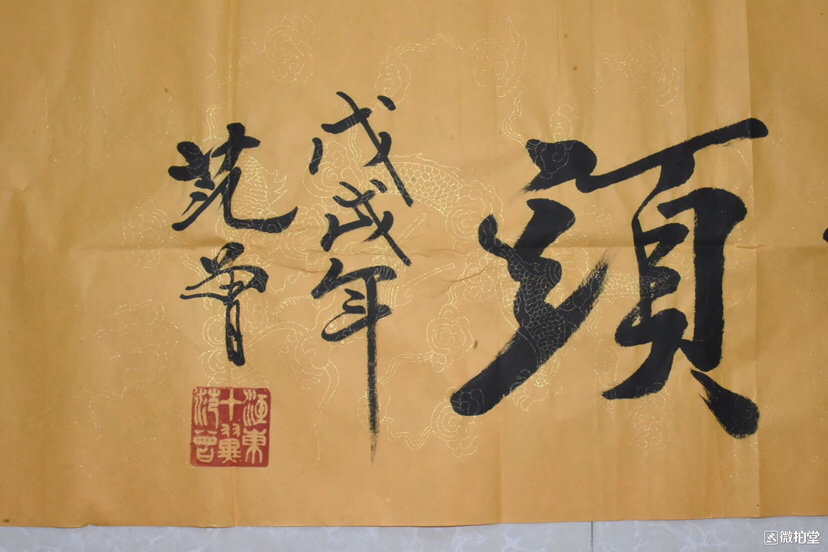 頭
戊戌年
范曾
江東
十翼
范曾
微拍堂